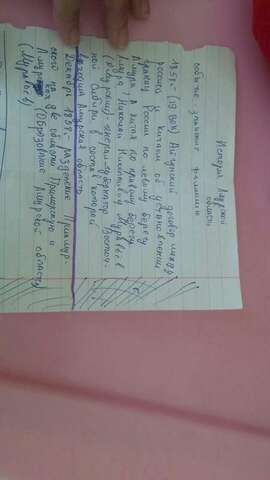 История Амурской
области
событие значит фамилии
1858г (19 век) Айгунский договор между
россией и китаем об установлении
границ России по левому берегу
Амура, а китая по правому берегу
Амура Николай Никитович Муравьёв
(Амурский)-генерал-губернатор Восточ-
ной Сибири в состав которой
входила Амурская область
Декабрь 1858г. разделение Приамур-
ской на две области Приморскую и
Амурская (Образование Амурской области)
(Муравьев)